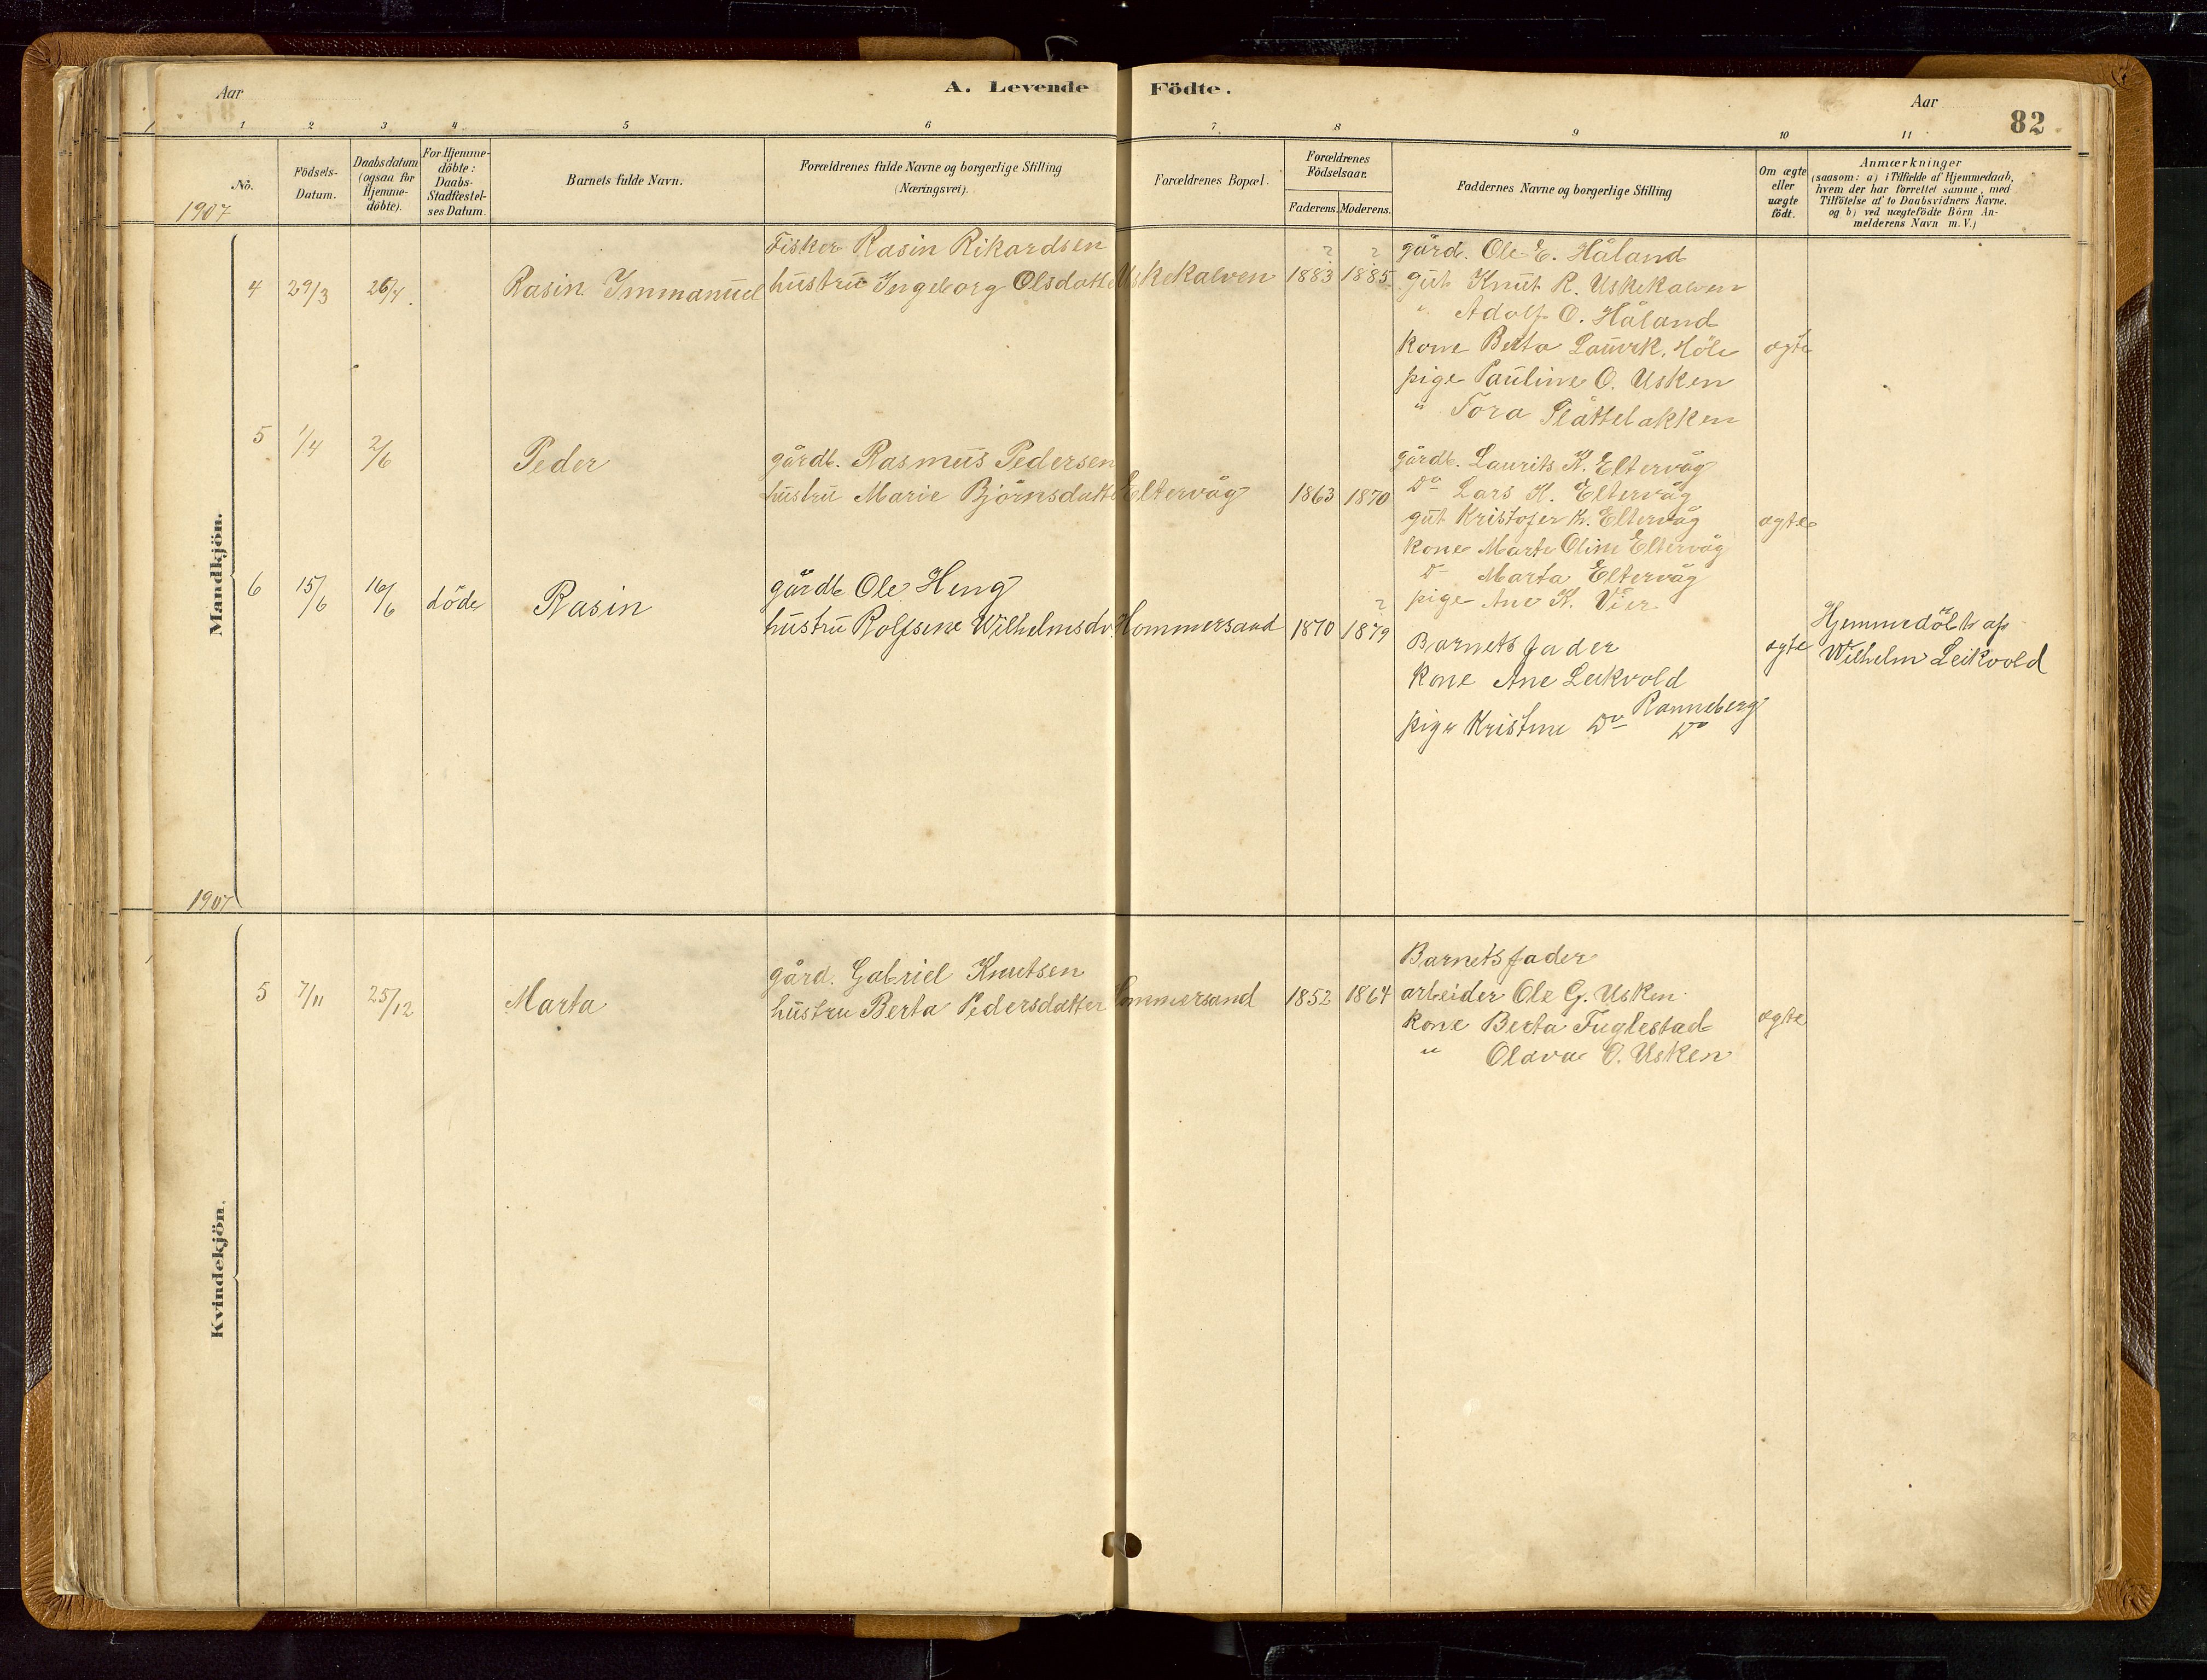 Aar
A. Levende Födte.
Aar
82
1 2 3 4 5 6 7 8 9 10 11
No.
Födsels-
Datum.
Daabsdatum
(ogsaa for
Hjemme-
döbte).
For Hjemme-
döbte:
Daabs-
Stadfæstel-
ses Datum.
Barnets fulde Navn.
Forældrenes fulde Navne og borgerlige Stilling
(Næringsvei).
Forældrenes Bopæl.
Forældrenes
Födselsaar.
Faderens. Moderens.
Faddernes Navne og borgerlige Stilling
Om ægte
eller
uægte
födt.
Anmærkninger
(saasom: a) i Tilfælde af Hjemmedaab,
hvem der har forrettet samme, med
Tilföielse af to Daabsvidners Navne.
og b) ved uægtefödte Börn An-
melderens Navn m.V.)
1907
Mandkjön.
4 29/3 26/4. Rasin Immanuel
Fisker Rasin Rikardsen
hustru Ingeborg Olsdatte
Uskekalven
? 1883
? 1885
gård. Ole E. Håland
gut Knut R. Uskekalven
" Adolf O. Håland
kone Berta Laurk. Höle
pige Pauline O. Usken
" Tora Slåttebakken
ægte
5 1/4 2/6 Peder
gårdb. Rasmus Pedersen
hustru Marie Björnsdatte
Eltervåg 1863 1870
gårdb. Laurits K. Eltervåg
Do Lars K. Eltervåg
gut Kristofer K. Eltervåg
kone Marte Oline Eltervåg
Do Marta Eltervåg
pige Ane K. Vier
ægte
6 15/6 16/6 döde Rasin
gårdb Ole Heng
hustru Rolfsene Wilhelmsd
Hommersand 1870
? 1879
Barnets fader
kone Ane Leikvold
Ranneberg
pige Kristine Do Do
ægte
Hjemmedöbt af
Wilhelm Leikvold
1907
Kvindekjön.
5 7/11 25/12 Marta
gård. Gabriel Knutsen
hustru Berta Pedersdatter
Hommersand 1852 1864
Barnets fader
arbeider Ole G. Usken
kone Berta Fuglestad
" Olava O. Usken
ægte